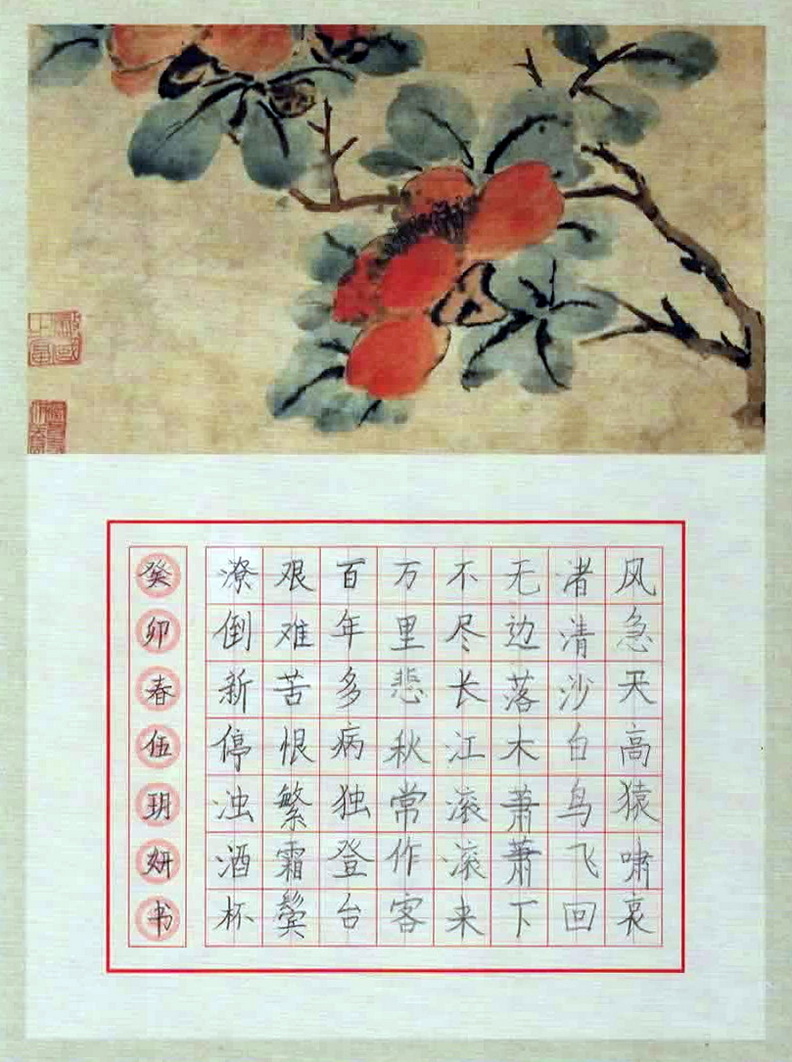 风急天高猿啸哀
渚清沙白鸟飞回
无边落木萧萧下
不尽长江滚滚来
万里悲秋常作客
百年多病独登台
艰难苦恨繁霜鬓
潦倒新停浊酒杯
癸卯春伍玥妍书